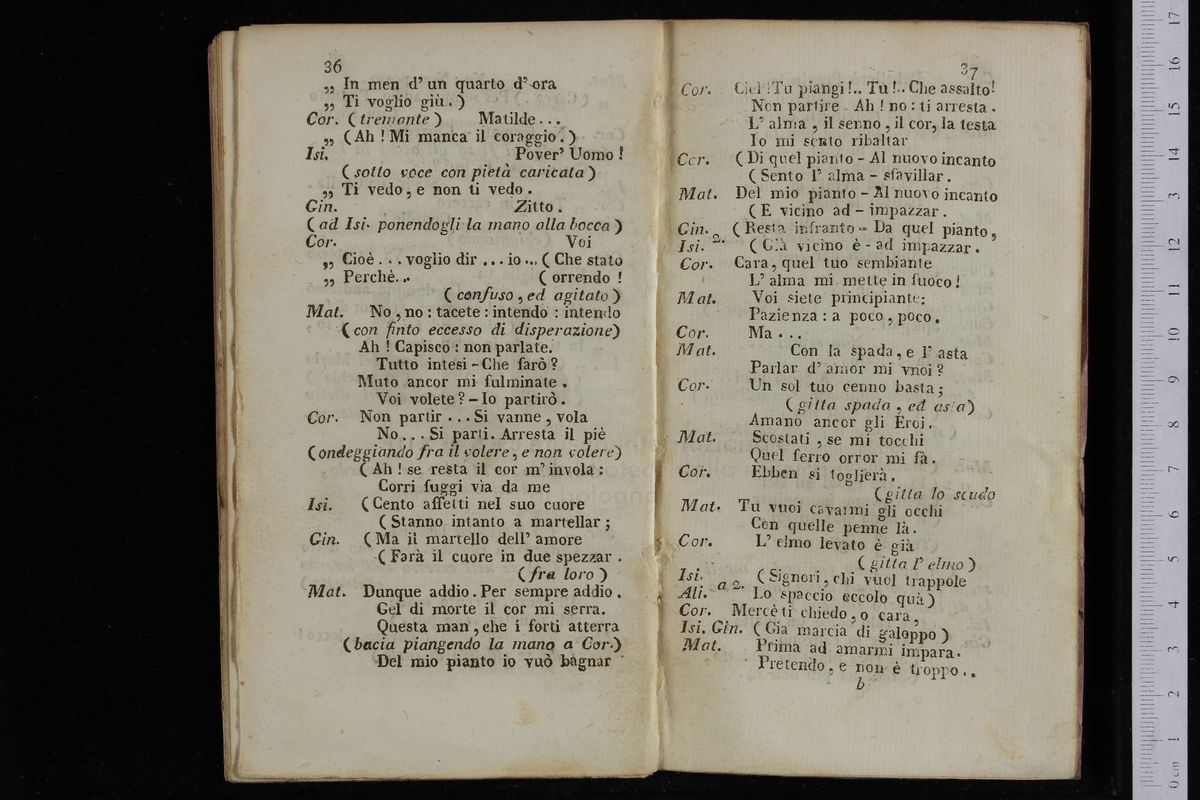 36
„ In men d' un quarto d' ora
„ Ti voglio giù . )
Cor. ( tremante ) Matilde . . .
„ ( Ah ! Mi manca il coraggio . )
Isi. Pover' Uomo !
( sotto voce con pietà caricata )
„ Ti vedo , e non ti vedo .
Gin. Zitto .
( ad Isi. ponendogli la mano alla bocca )
Cor. Voi
„ Cioè . . . voglio dir ... io ... ( Che stato
„ Perchè... ( orrendo !
( confuso , ed agitato )
Mat. No , no : tacete : intendo : intendo
( con finto eccesso di disperazione)
Ah ! Capisco : non parlate.
Tutto intesi - Che farò ?
Muto ancor mi fulminate .
Voi volete ? - Io partirò .
Cor. Non partir . . . Si vanne , vola
No . . . Si parti. Arresta il piè
( ondeggiando fra il volere , e non volere)
( Ah ! se resta il cor m' invola :
Corri fuggi via da me
Isi. ( Cento affetti nel suo cuore
( Stanno intanto a martellar ;
Gin. ( Ma il martello dell' amore
( Farà il cuore in due spezzar .
( fra loro )
Mat. Dunque addio . Per sempre addio .
Gel di morte il cor mi serra.
Questa man , che i forti atterra
( bacia piangendo la mano a Cor.)
Del mio pianto io vuò bagnar
37
Cor. Ciel ! Tu piangi !.. Tu !.. Che assalto!
Non partire . Ah ! no : ti arresta .
L' alma , il senno , il cor, la testa
Io mi sento ribaltar
Cor. ( Di quel pianto - Al nuovo incanto
( Sento l' alma - sfavillar.
Mat. Del mio pianto - Al nuovo incanto
( E vicino ad - impazzar .
Gin. 2. ( Resta infranto - Da quel pianto ,
Isi. ( Già vicino è - ad impazzar .
Cor. Cara , quel tuo sembiante
L' alma mi mette in fuoco !
Mat. Voi siete principiante:
Pazienza : a poco , poco .
Cor. Ma . . .
Mat. Con la spada , e l' asta
Parlar d' amor mi vuoi ?
Cor. Un sol tuo cenno basta ;
( gitta spada , ed asta)
Amano ancor gli Eroi.
Mat. Scostati , se mi tocchi
Quel ferro orror mi fà .
Cor. Ebben si toglierà .
( gitta lo scudo
Mat. Tu vuoi cavarmi gli occhi
Con quelle penne là .
Cor. L' elmo levato è già
( gitta l' elmo )
Isi. a 2. ( Signori , chi vuol trappole
Ali. Lo spaccio eccolo quà )
Cor. Mercè ti chiedo , o cara ,
Isi. Gin. ( Gia marcia di galoppo )
Mat. Prima ad amarmi impara .
Pretendo , e non è troppo . .
b